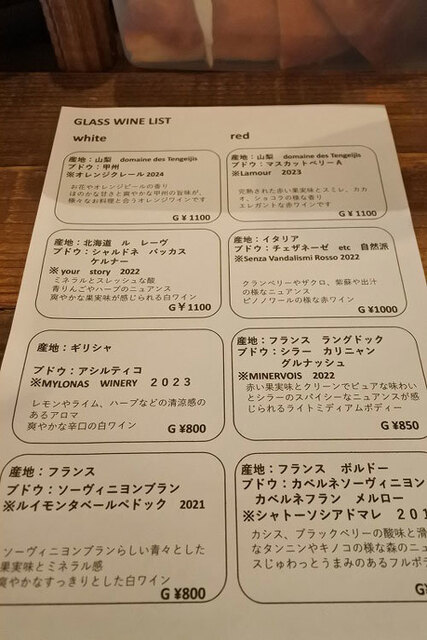 GLASS WINE LIST
white
産地：山梨 domaine des Tengeijis
ブドウ：甲州
※オレンジクレール 2024
お花やオレンジピールの香り
ほのかな甘さと爽やかな甲州の旨味が、
様々なお料理と合うオレンジワインです
G ¥ 1100
産地：北海道 ル レーヴ
ブドウ：シャルドネ バッカス
ケルナー
※ your story 2022
ミネラルとスレッシュな酸
青りんごやハーブのニュアンス
爽やかな果実味が感じられる白ワイン
G ¥ 1100
産地：ギリシャ
ブドウ：アシルティコ
※MYLONAS WINERY ２０２３
レモンやライム、ハーブなどの清涼感の
あるアロマ
爽やかな辛口の白ワイン
G ¥800
産地：フランス
ブドウ：ソーヴィニヨンブラン
※ルイモンタベールペドック 2021
ソーヴィニヨンブランらしい青々とした
果実味とミネラル感
爽やかなすっきりとした白ワイン
G ¥800
red
産地：山梨 domaine des Tengeijis
ブドウ：マスカットベリーA
※Lamour 2023
完熟された赤い果実味とスミレ、カカ
オ、ショコラの様な香り
エレガントな赤ワインです
G ¥ 1100
産地：イタリア
ブドウ：チェザネーゼ etc 自然派
※Senza Vandalismi Rosso 2022
クランベリーやザクロ、紫蘇や出汁
の様なニュアンス
ピノノワールの様な赤ワイン
G ¥1000
産地：フランス ラングドック
ブドウ：シラー カリニャン
グルナッシュ
※MINERVOIS 2022
赤い果実味とクリーンでピュアな味わい
とシラーのスパイシーなニュアンスが感
じられるライトミディアムボディー
G ¥850
産地：フランス ボルドー
ブドウ：カベルネソーヴィニヨン
カベルネフラン メルロー
※シャトーソシアドマレ ２０１
カシス、ブラックベリーの酸味と滑
なタンニンやキノコの様な森のニュ
スじゅわっとうまみのあるフルボ
G¥